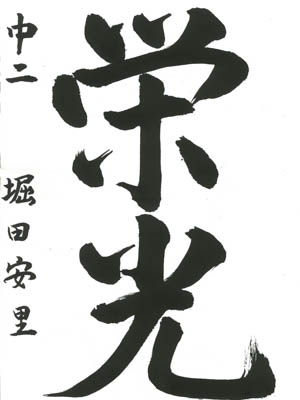 栄光
中二 堀田安里